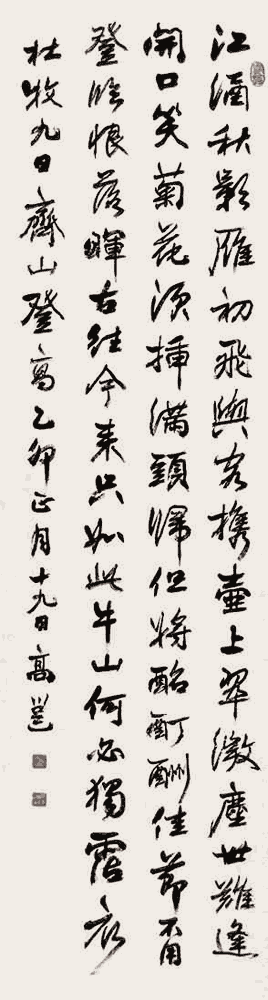 江涵秋影雁初飛與客攜壺上翠微塵世難逢
開口笑菊花須插滿頭歸但將酩酊酬佳節不用
登臨恨落暉古往今來只如此牛山何必獨霑衣
杜牧九日齊山登高乙卯正月十九日高邕